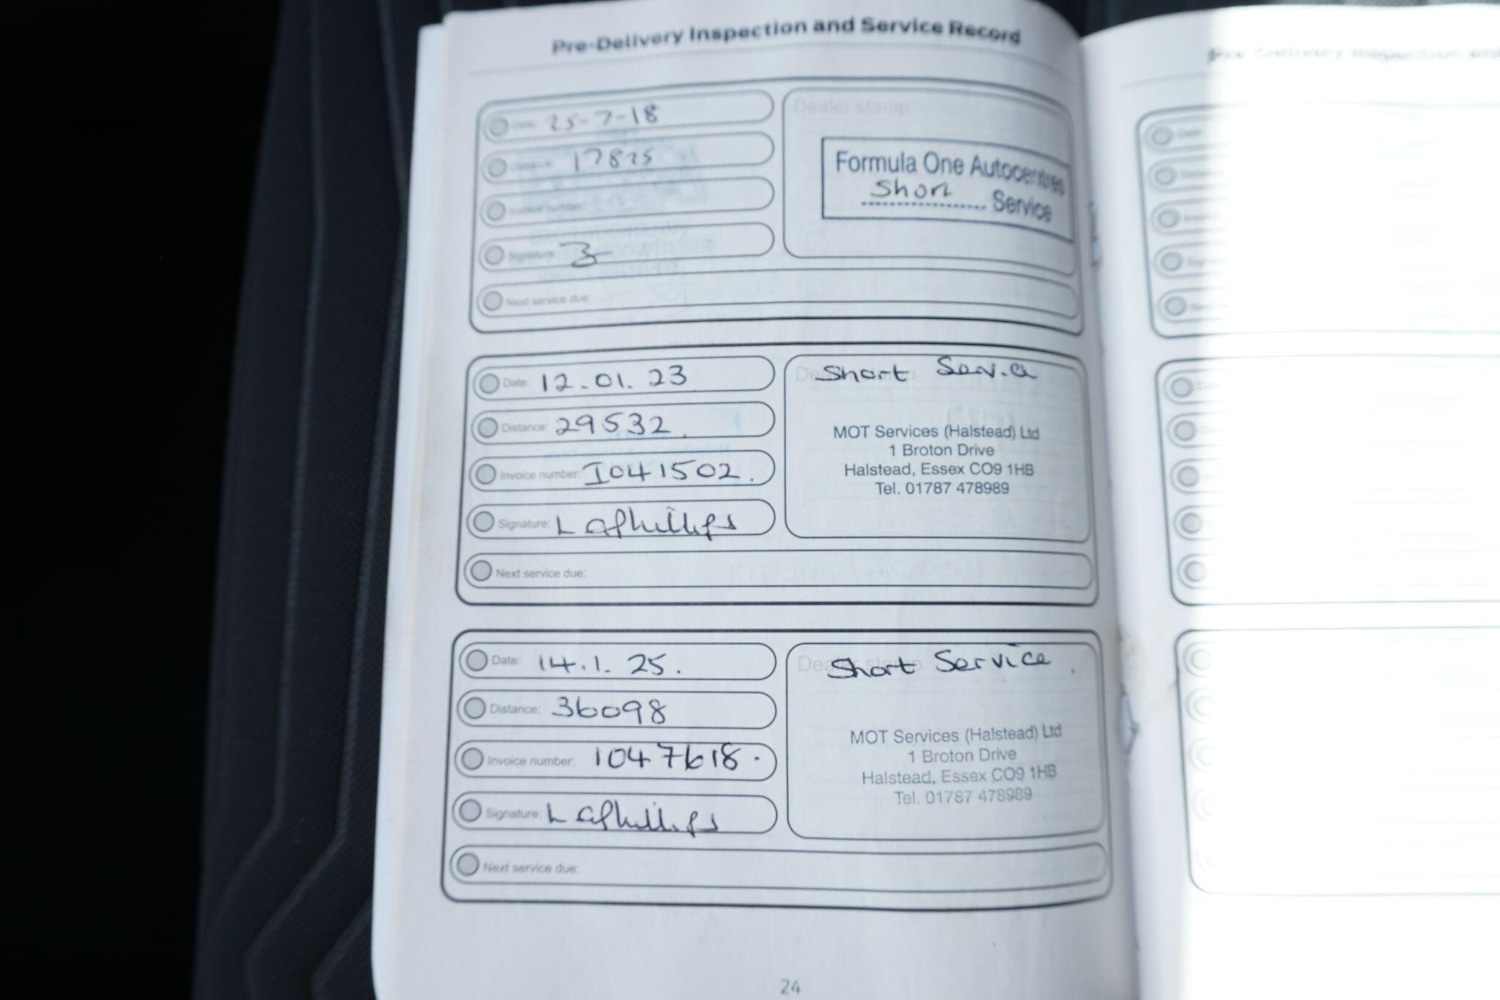 Pre-Delivery Inspection and Service Record
Date: 25-7-18
Dealer stamp:
Distance: 17825
Formula One Autocentres
Short Service
Invoice number:
Signature:
Next service due:
Date: 12.01.23
Short Service
Distance: 29532.
MOT Services (Halstead) Ltd
1 Broton Drive
Invoice number: I041502.
Halstead, Essex CO9 1HB
Tel. 01787 478989
Signature: L A Phillips
Next service due:
Date: 14.1.25.
Short Service.
Distance: 36098
MOT Services (Halstead) Ltd
1 Broton Drive
Invoice number: 1047618.
Halstead, Essex CO9 1HB
Tel. 01787 478989
Signature: L A Phillips
Next service due:
24